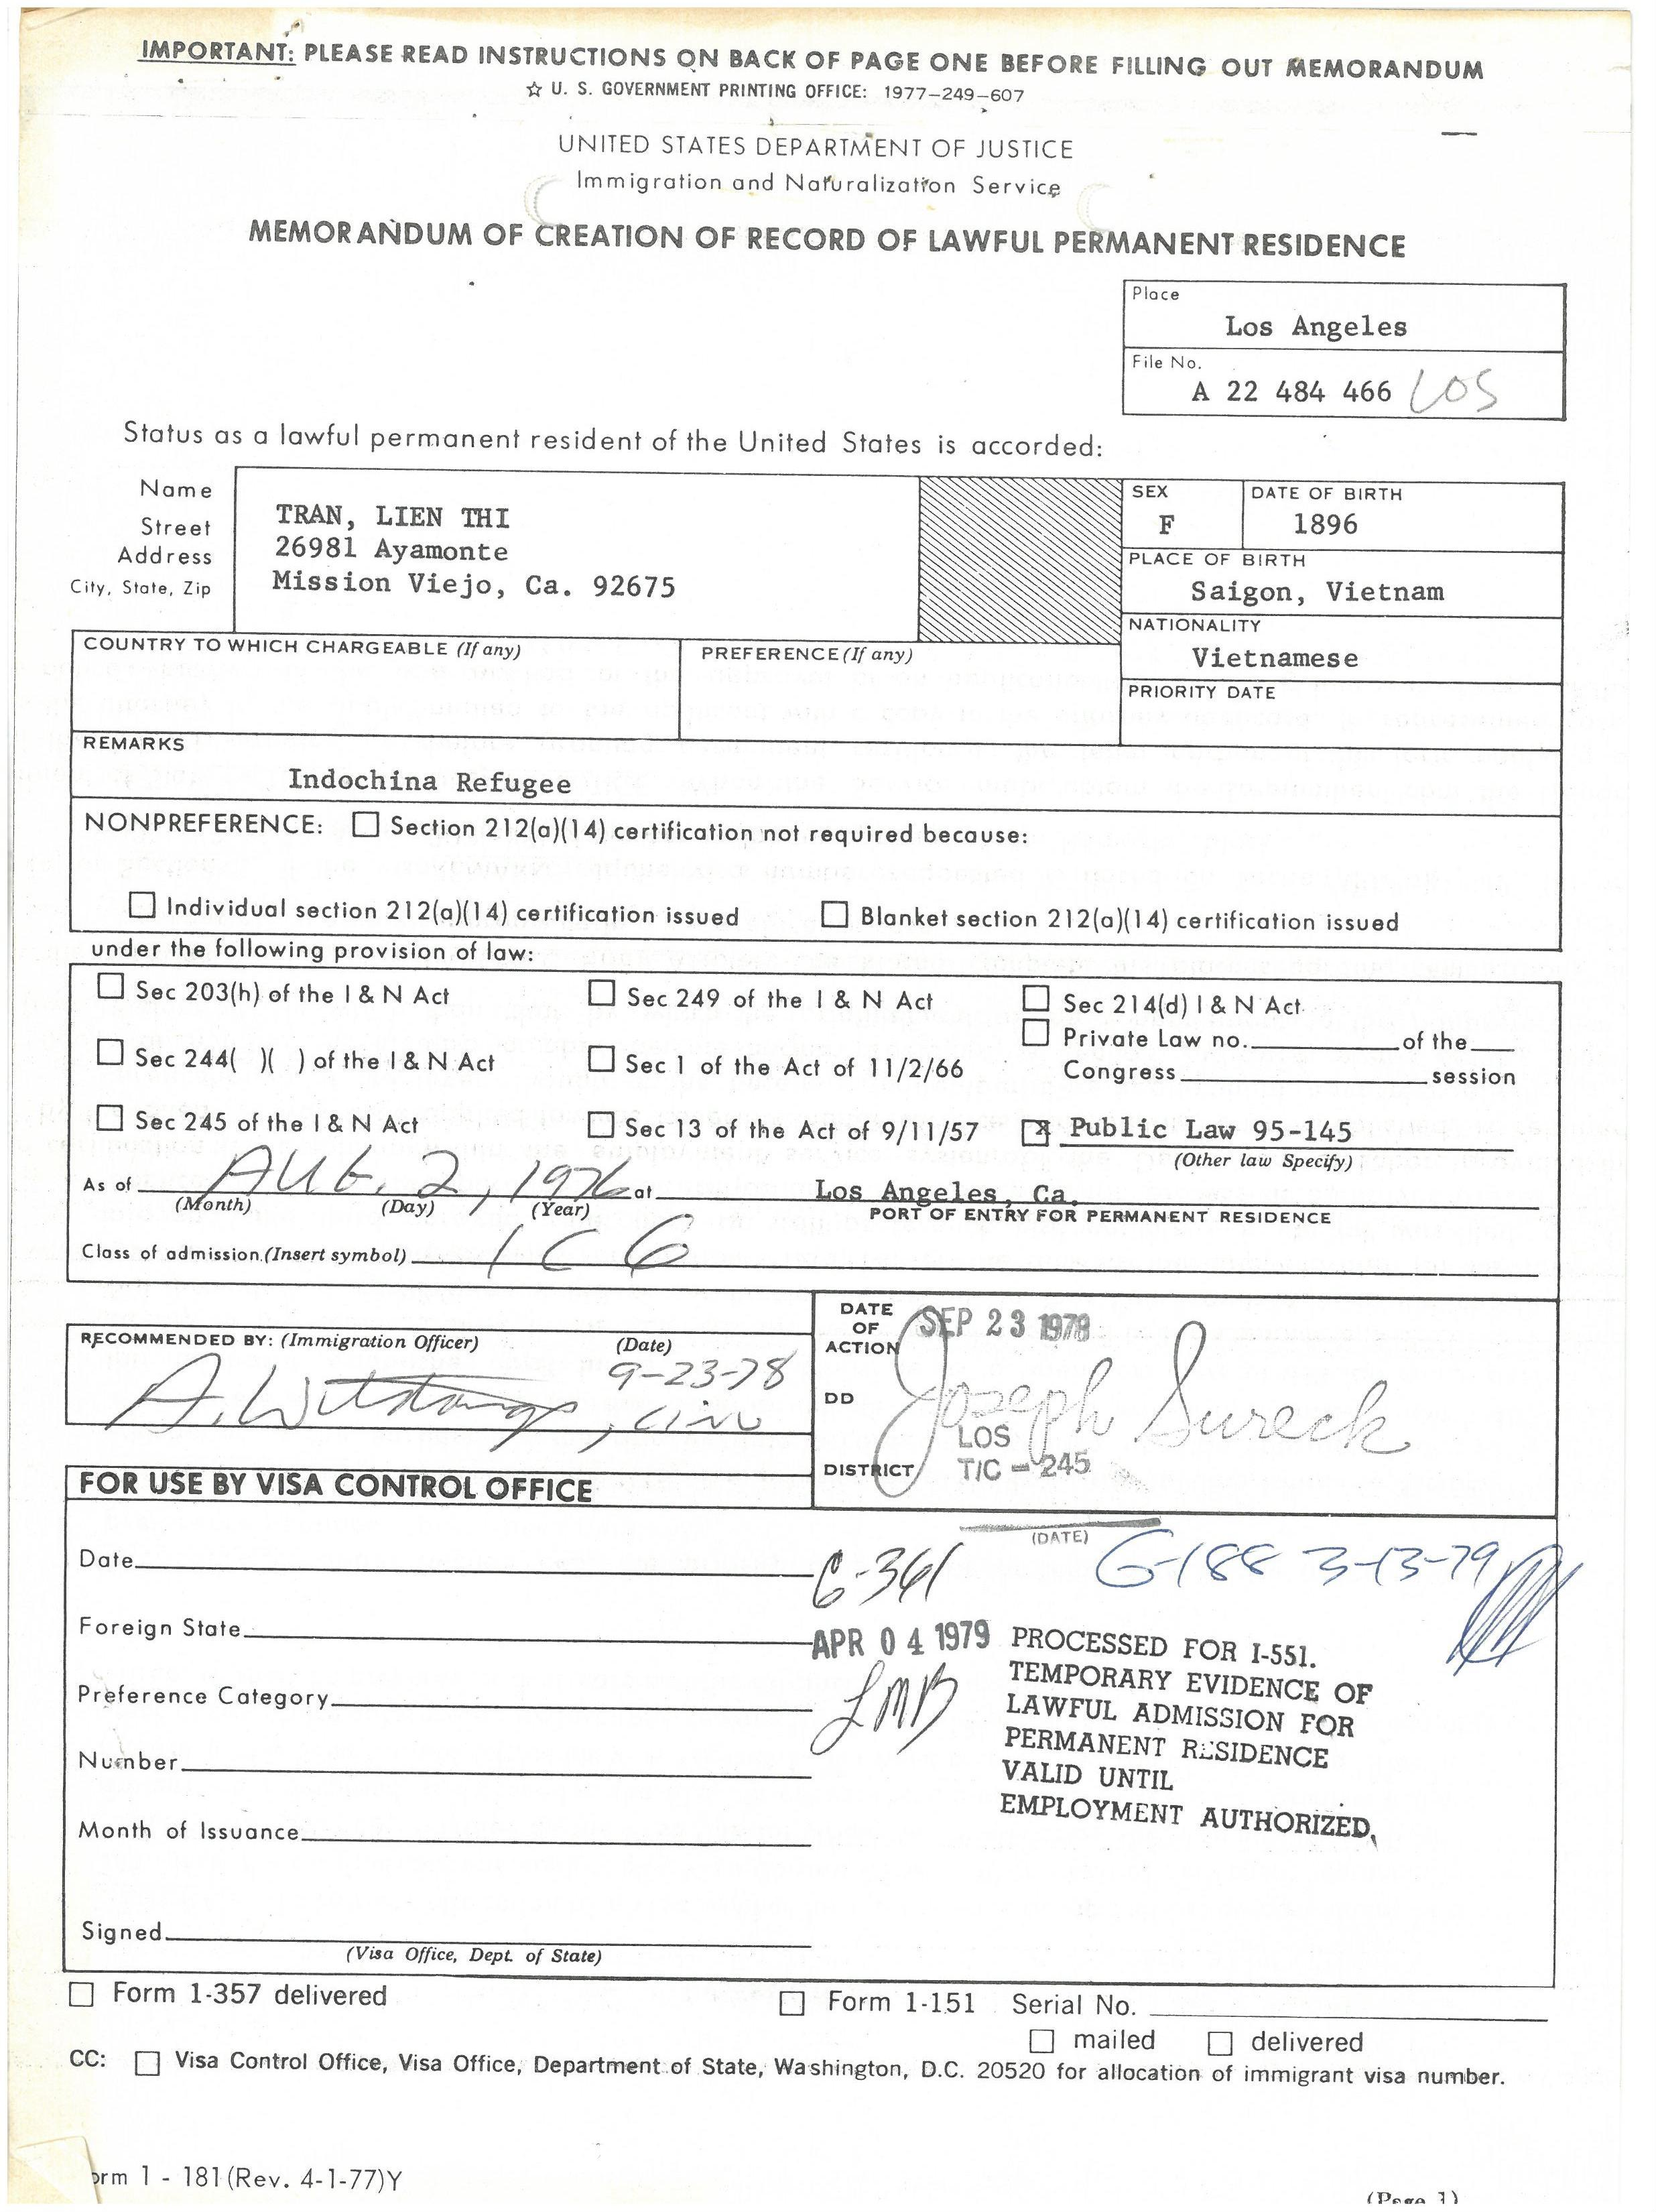 IMPORTANT: PLEASE READ INSTRUCTIONS ON BACK OF PAGE ONE BEFORE FILLING OUT MEMORANDUM
☆ U. S. GOVERNMENT PRINTING OFFICE: 1977-249-607
UNITED STATES DEPARTMENT OF JUSTICE
Immigration and Naturalization Service
MEMORANDUM OF CREATION OF RECORD OF LAWFUL PERMANENT RESIDENCE
Place
Los Angeles
File No.
A 22 484 466 LOS
Status as a lawful permanent resident of the United States is accorded:
Name
Street
Address
City, State, Zip
TRAN, LIEN THI
26981 Ayamonte
Mission Viejo, Ca. 92675
SEX
F
DATE OF BIRTH
1896
PLACE OF BIRTH
Saigon, Vietnam
NATIONALITY
Vietnamese
PRIORITY DATE
COUNTRY TO WHICH CHARGEABLE (If any)
PREFERENCE (If any)
REMARKS
Indochina Refugee
NONPREFERENCE: ☐ Section 212(a)(14) certification not required because:
☐ Individual section 212(a)(14) certification issued ☐ Blanket section 212(a)(14) certification issued
under the following provision of law:
☐ Sec 203(h) of the I & N Act ☐ Sec 249 of the I & N Act ☐ Sec 214(d) I & N Act
☐ Private Law no. of the
☐ Sec 244( )( ) of the I & N Act ☐ Sec 1 of the Act of 11/2/66 Congress session
☐ Sec 245 of the I & N Act ☐ Sec 13 of the Act of 9/11/57 ☒ Public Law 95-145
(Other law Specify)
As of AUG. 2, 1976 at Los Angeles, Ca.
(Month) (Day) (Year) PORT OF ENTRY FOR PERMANENT RESIDENCE
Class of admission (Insert symbol) IC6
RECOMMENDED BY: (Immigration Officer) (Date)
9-23-78
DATE OF ACTION
SEP 23 1978
DD
Joseph Sureck
LOS
DISTRICT T/C - 245
FOR USE BY VISA CONTROL OFFICE
(DATE)
Date
G-361
G-188 3-13-79
Foreign State
APR 04 1979
LMB
PROCESSED FOR I-551.
TEMPORARY EVIDENCE OF
LAWFUL ADMISSION FOR
PERMANENT RESIDENCE
VALID UNTIL
EMPLOYMENT AUTHORIZED.
Preference Category
Number
Month of Issuance
Signed
(Visa Office, Dept. of State)
☐ Form 1-357 delivered ☐ Form 1-151 Serial No.
☐ mailed ☐ delivered
CC: ☐ Visa Control Office, Visa Office, Department of State, Washington, D.C. 20520 for allocation of immigrant visa number.
orm 1 - 181 (Rev. 4-1-77)Y
(Page 1)